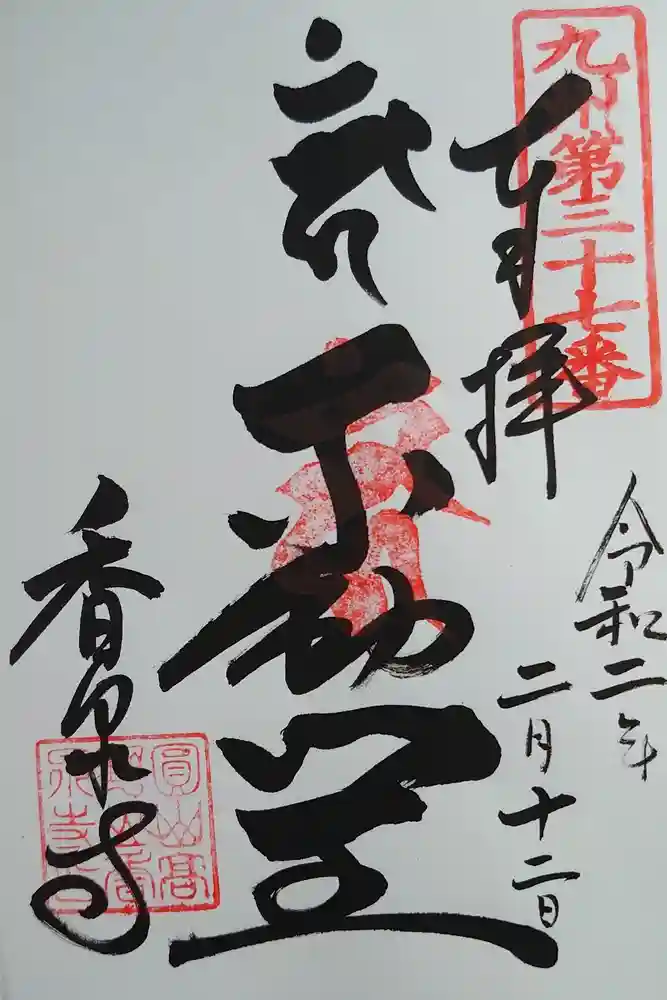 九州第三十七番
奉拝
令和二年
二月十二日
不動堂
香泉寺